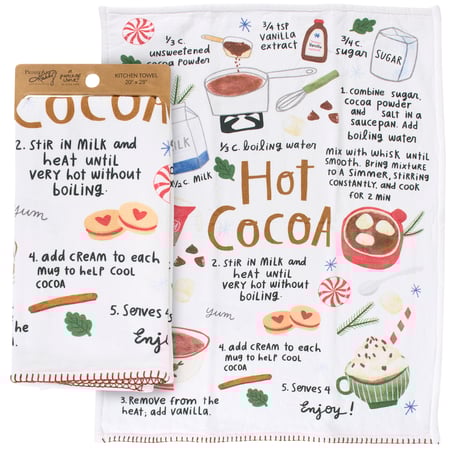 KITCHEN TOWEL
20" x 28"
COCOA
2. Stir in Milk and
heat until
very hot without
boiling.
yum
4. add cream to each
mug to help cool
cocoa
5. Serves 4
Enjoy!
1/3 c.
unsweetened
cocoa powder
3/4 tsp
vanilla
extract
Vanilla
3/4 c.
sugar
SUGAR
1. combine sugar,
cocoa powder
and salt in a
saucepan. Add
boiling water
Mix with whisk until
smooth. Bring mixture
to a simmer, stirring
constantly, and cook
for 2 min
1/3 c. boiling water
MILK
1/2 c. MILK
Hot
COCOA
2. Stir in Milk and
heat until
very hot without
boiling.
yum
4. add cream to each
mug to help cool
cocoa
3. Remove from the
heat; add vanilla.
5. Serves 4
Enjoy!